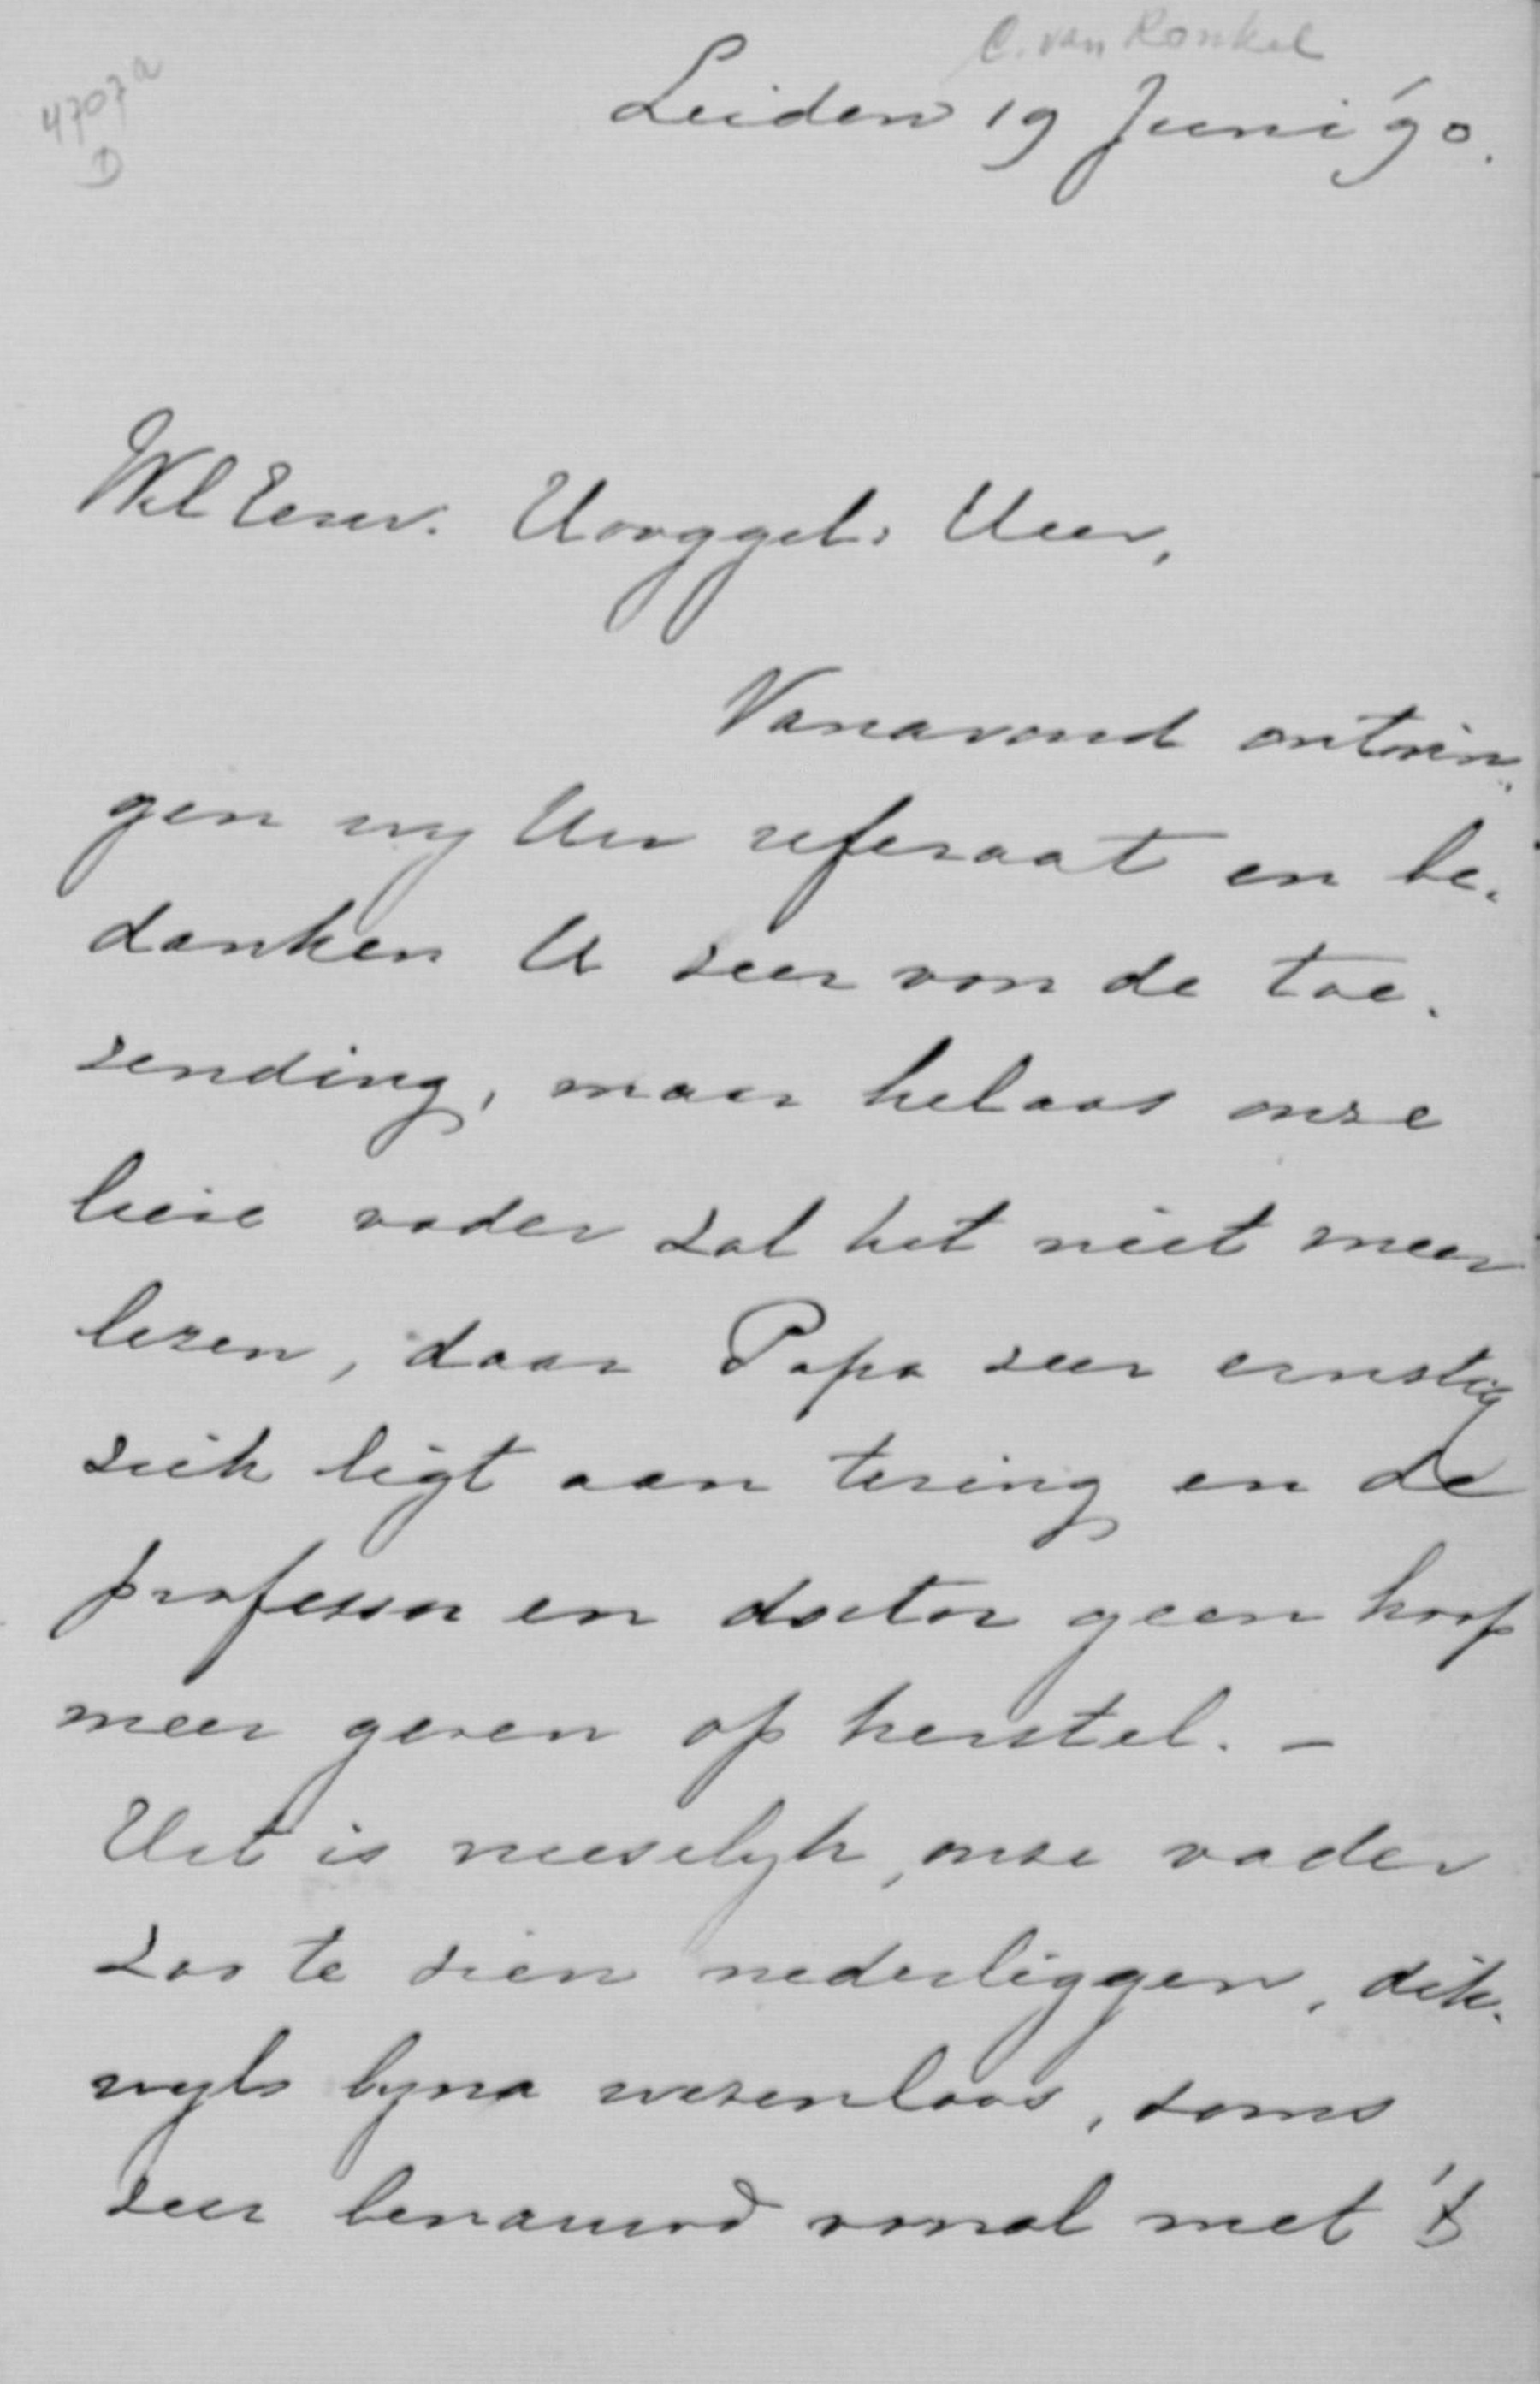 C. van Ronkel
4707a
D
Leiden 19 Juni '90.
WelEerw. Hooggel. Heer,
Vanavond ontvin-
gen wy Uw referaat en be-
danken U zeer voor de toe-
zending, maar helaas onze
lieve vader zal het niet meer
lezen, daar Papa zeer ernstig
ziek ligt aan tering en de
professor en doctor geen hoop
meer geven op herstel. -
Het is vreeselyk, onze vader
zoo te zien nederliggen, dik-
wyls byna wezenloos, soms
zeer benauwd vooral met 't